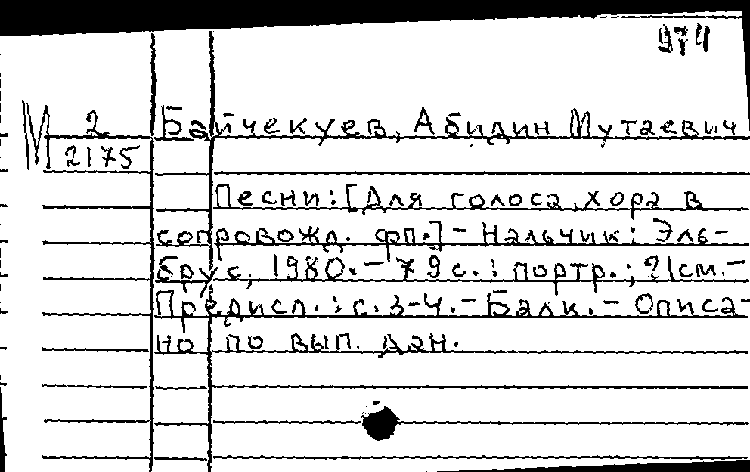 974
М 2
2175
Байчекуев, Абидин Мутаевич
Песни: [Для голоса, хора в
сопровожд. фп.] - Нальчик: Эль-
брус, 1980. - 79 с.: портр.; 21см. -
Предисл.: с. 3-4. - Балк. - Описа-
но по вып. дан.